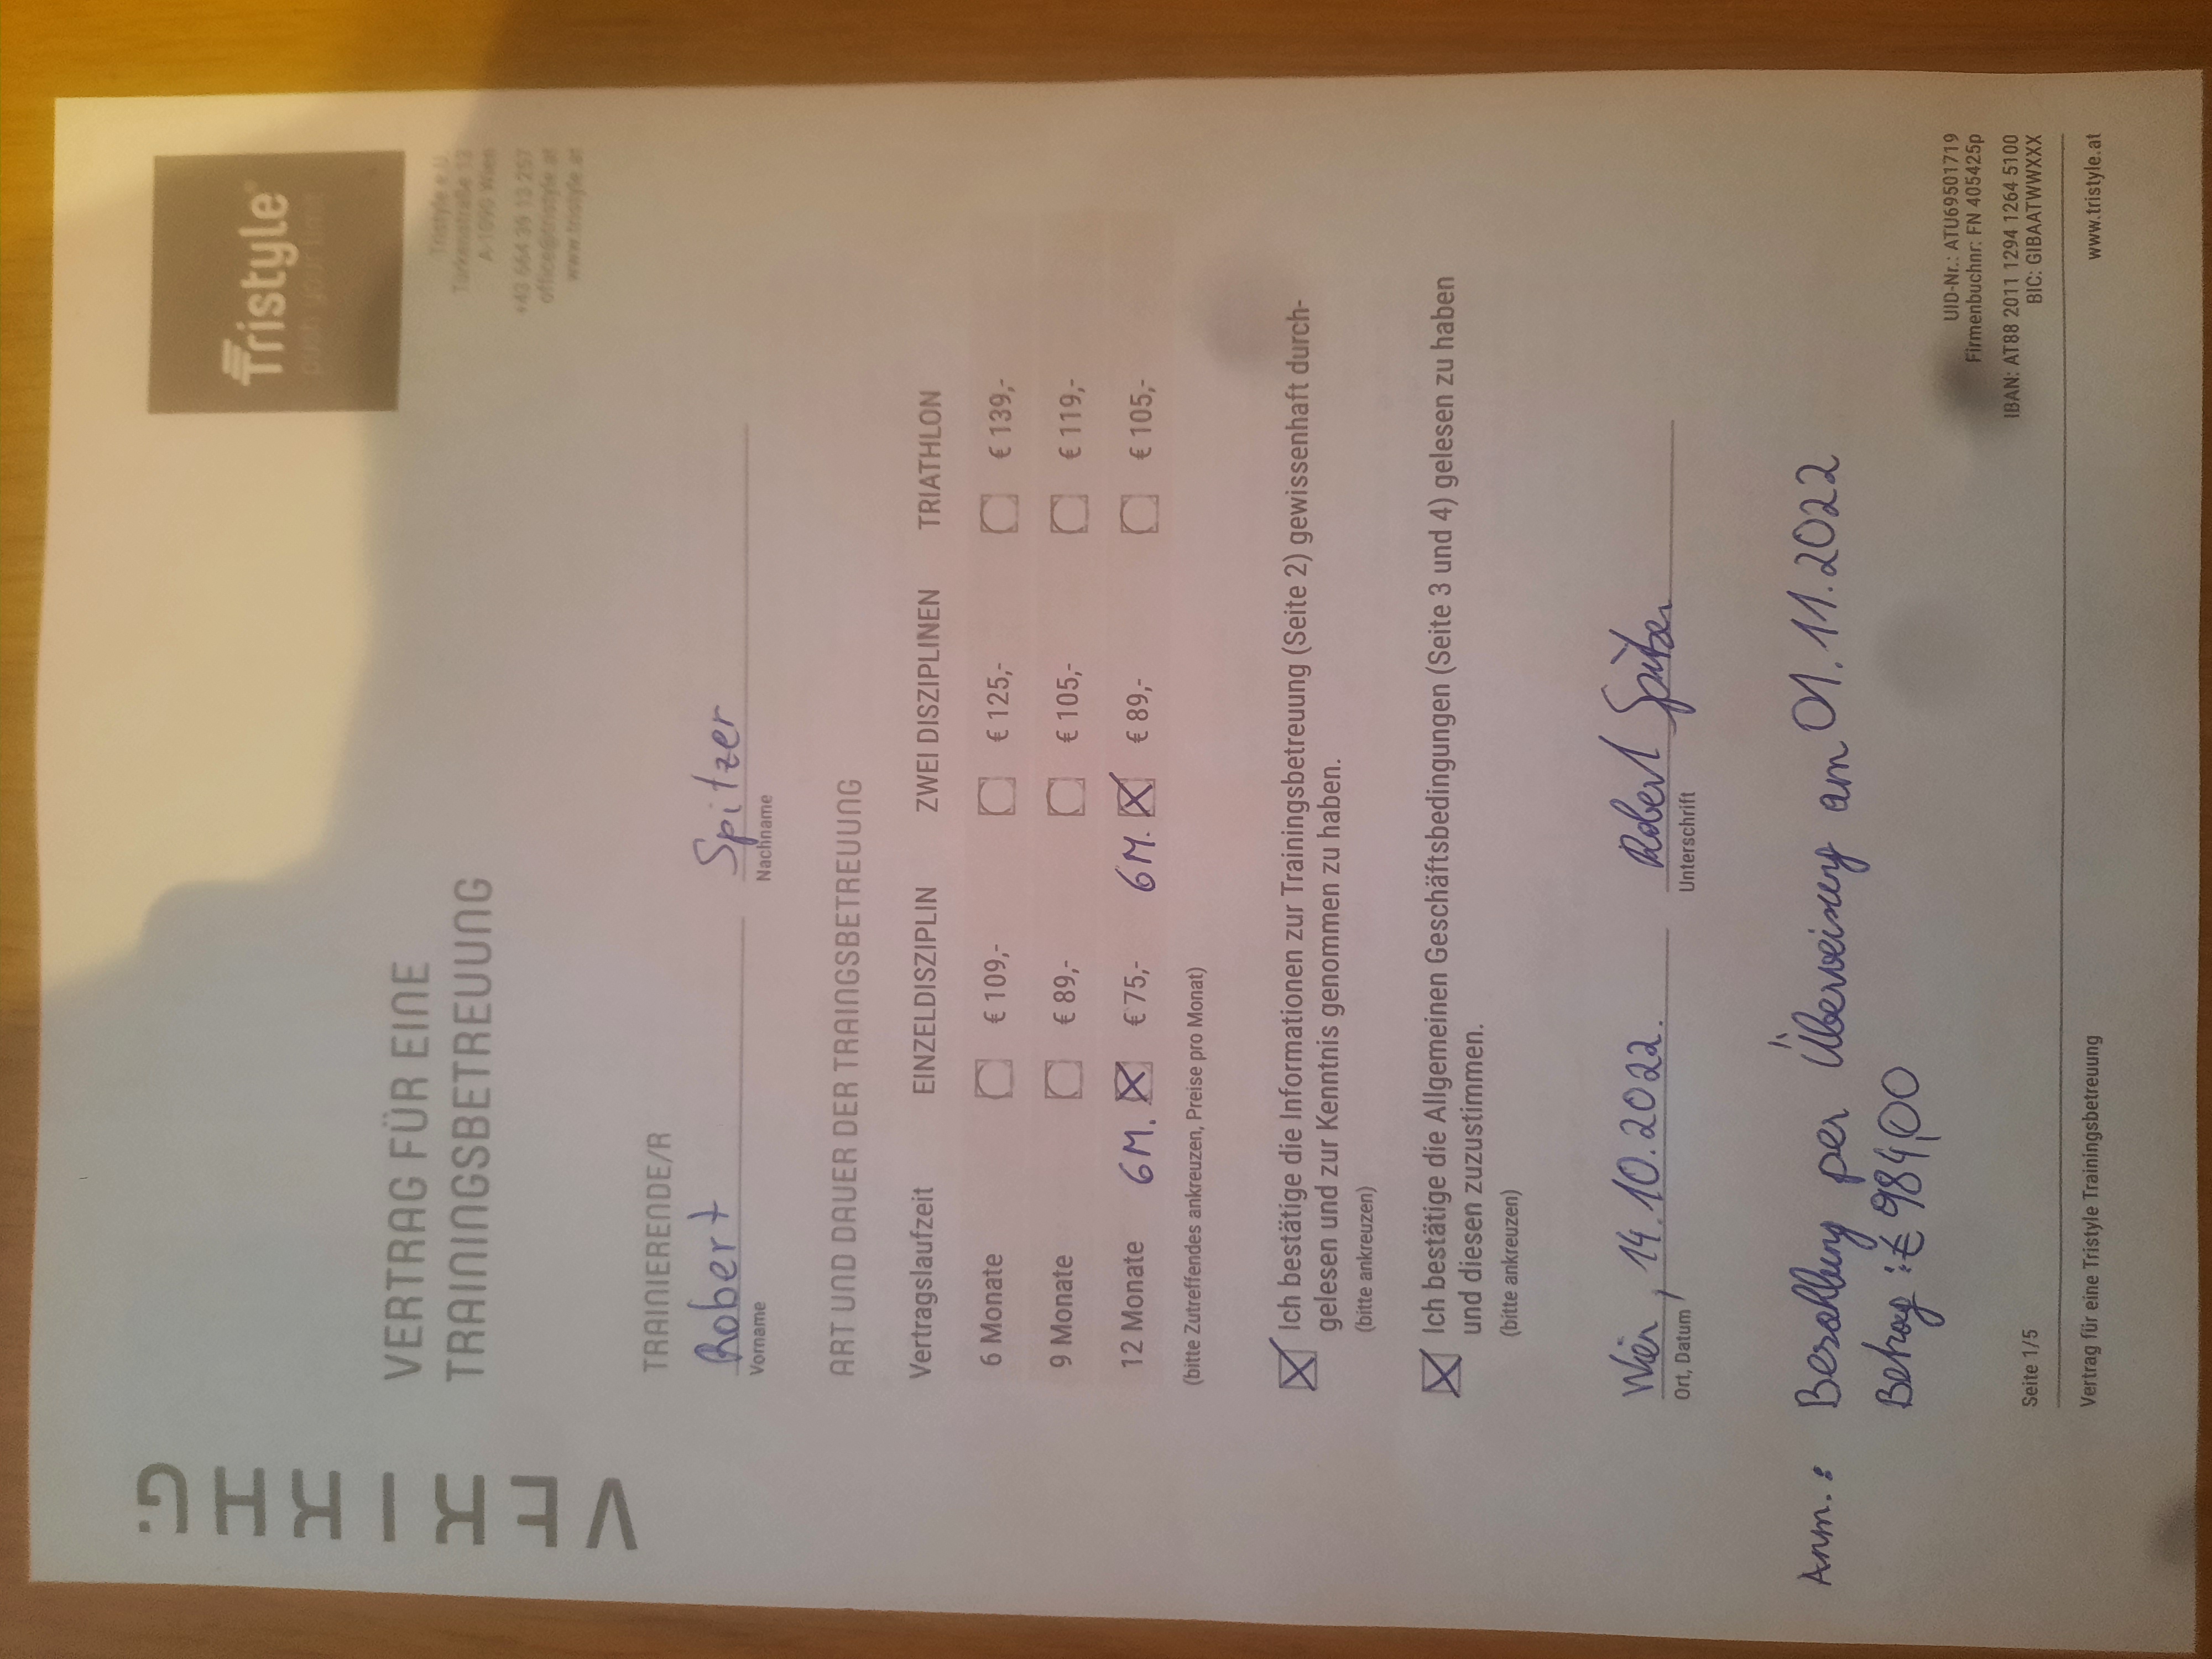 VERTRAG
Tristyle
push your limit
VERTRAG FÜR EINE
TRAININGSBETREUUNG
Tristyle e.U.
Türkenstraße 13
A-1090 Wien
+43 664 39 13 257
office@tristyle.at
www.tristyle.at
TRAINIERENDE/R
Robert Spitzer
Vorname Nachname
ART UND DAUER DER TRAINGSBETREUUNG
Vertragslaufzeit EINZELDISZIPLIN ZWEI DISZIPLINEN TRIATHLON
6 Monate € 109,- € 125,- € 139,-
9 Monate € 89,- € 105,- € 119,-
12 Monate 6M. € 75,- 6M. € 89,- € 105,-
(bitte Zutreffendes ankreuzen, Preise pro Monat)
Ich bestätige die Informationen zur Trainingsbetreuung (Seite 2) gewissenhaft durch-
gelesen und zur Kenntnis genommen zu haben.
(bitte ankreuzen)
Ich bestätige die Allgemeinen Geschäftsbedingungen (Seite 3 und 4) gelesen zu haben
und diesen zuzustimmen.
(bitte ankreuzen)
Wien, 14.10.2022. Robert Spitzer
Ort, Datum Unterschrift
Anm.: Bezahlung per Überweisung am 01.11.2022
Betrag: € 984,00
UID-Nr.: ATU69501719
Firmenbuchnr: FN 405425p
IBAN: AT88 2011 1294 1264 5100
BIC: GIBAATWWXXX
Seite 1/5
Vertrag für eine Tristyle Trainingsbetreuung www.tristyle.at